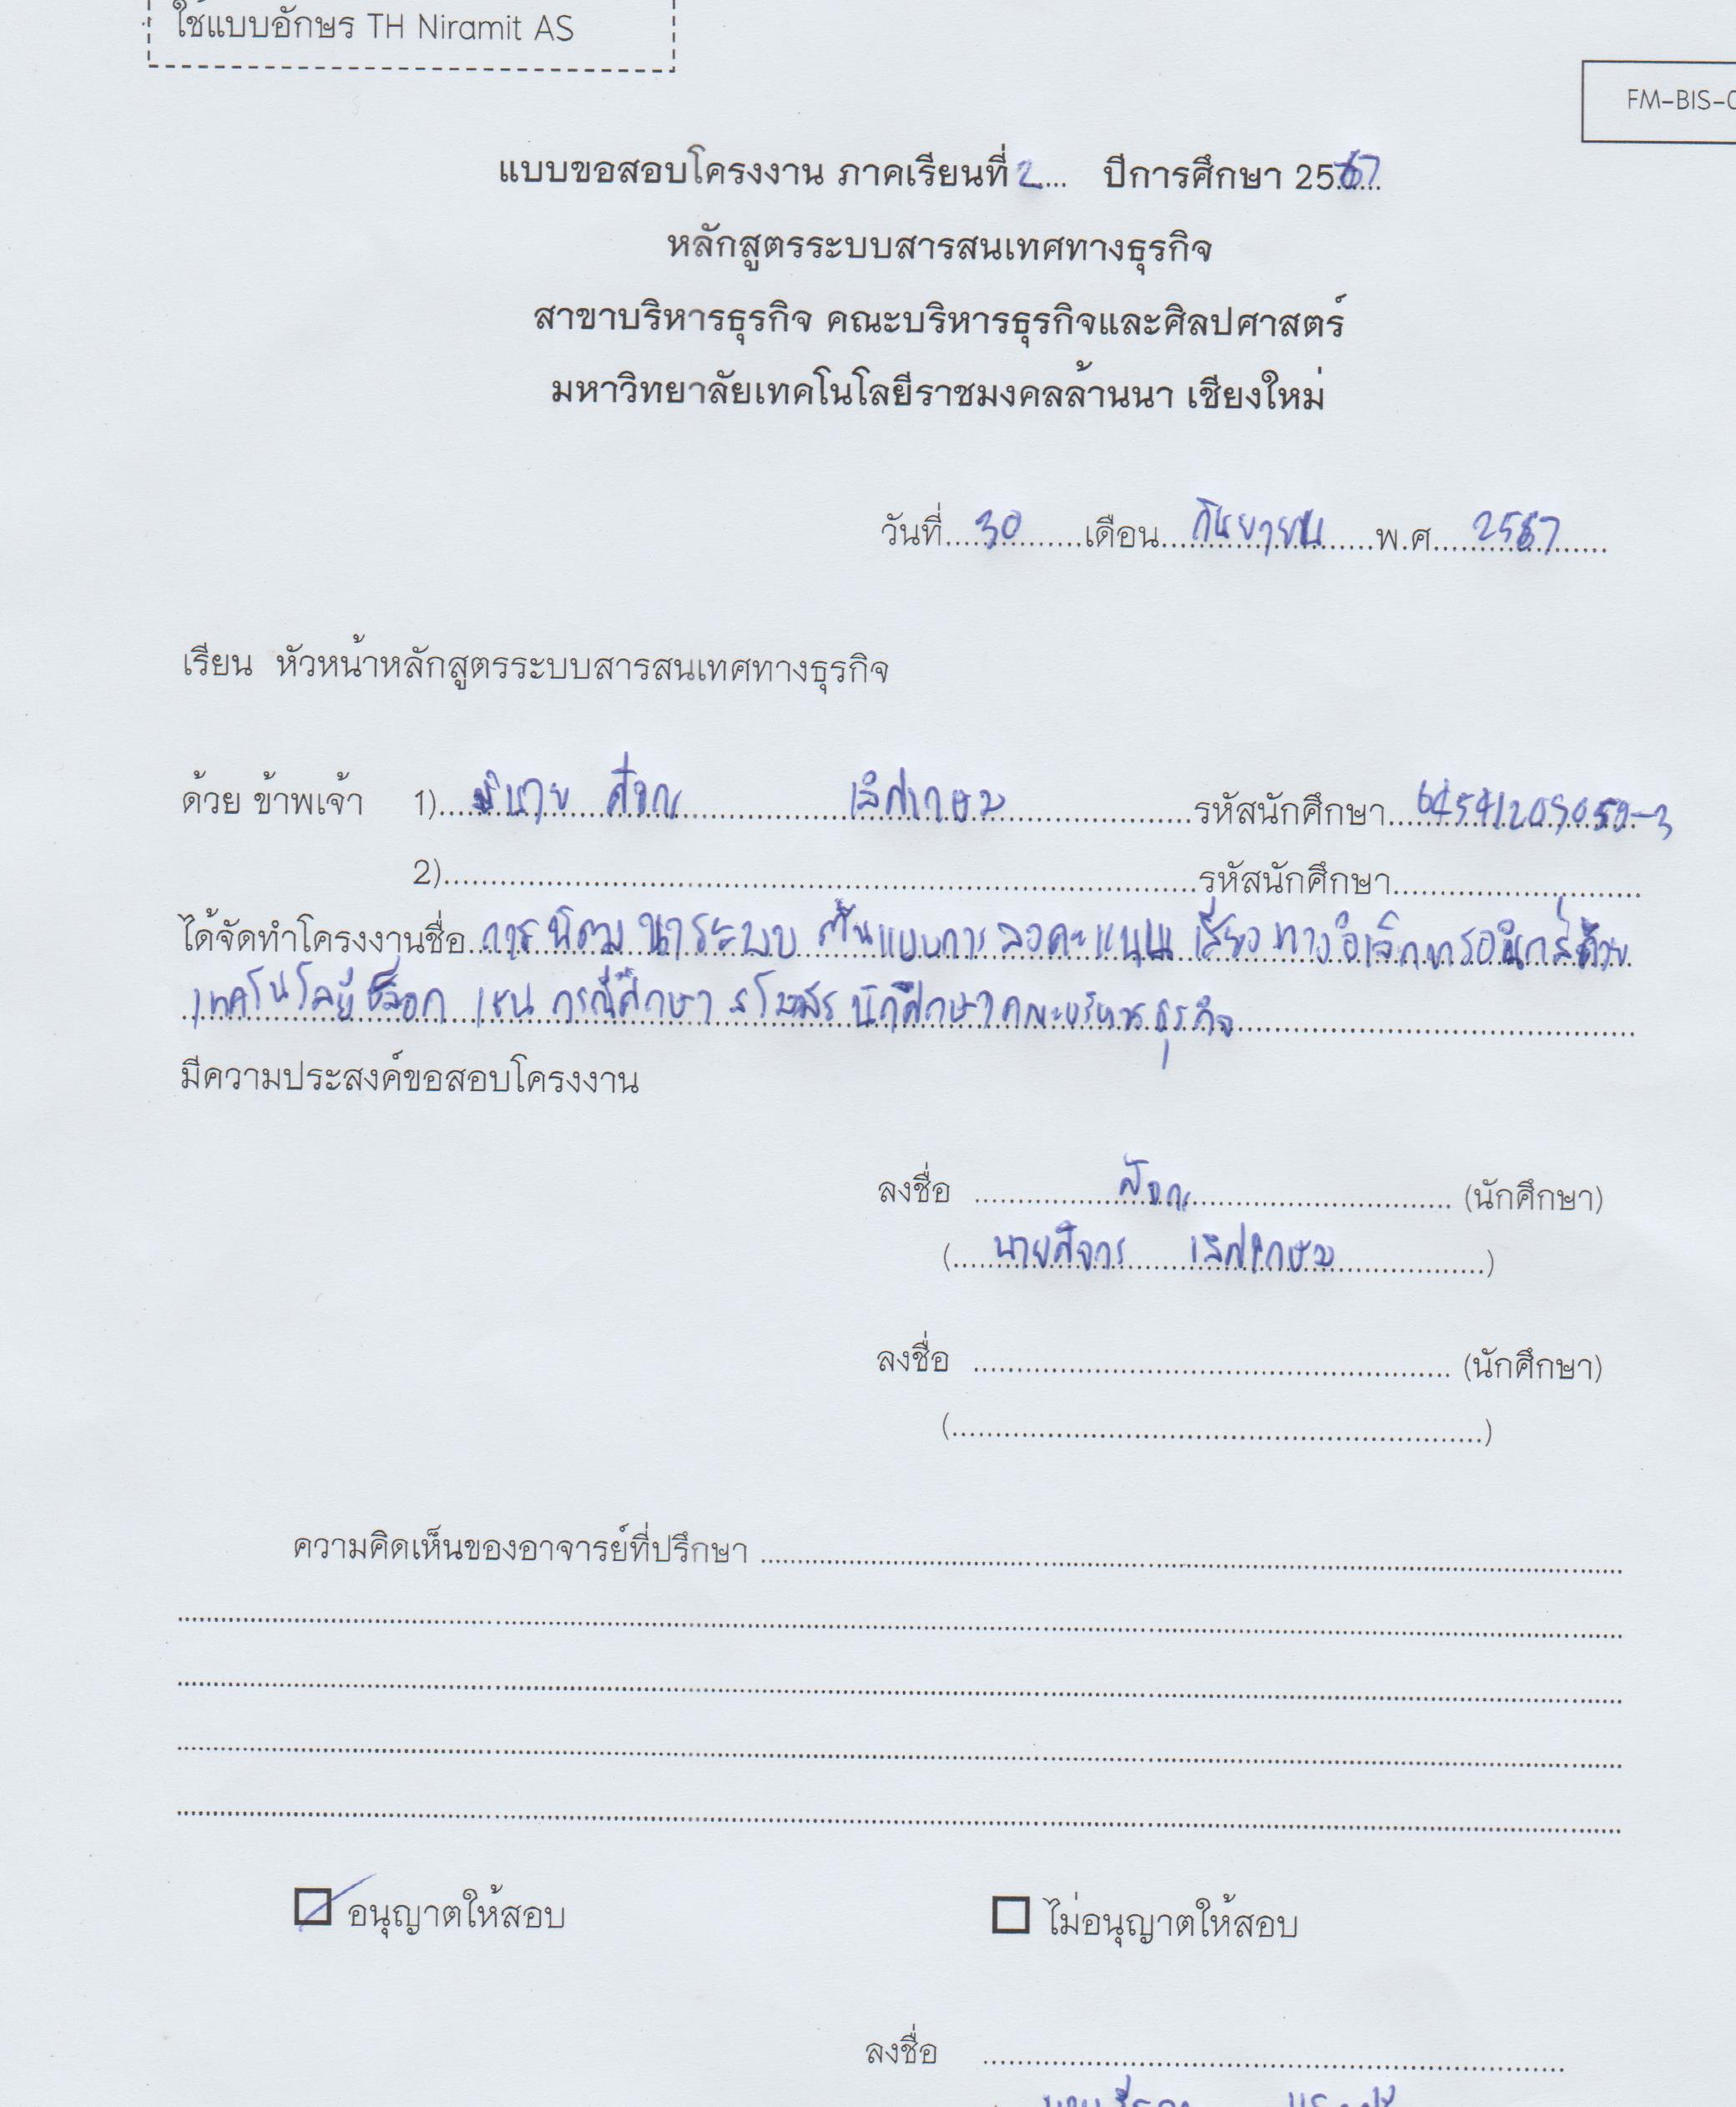 ใช้แบบอักษร TH Niramit AS
FM-BIS-0
แบบขอสอบโครงงาน ภาคเรียนที่ 2.... ปีการศึกษา 2567
หลักสูตรระบบสารสนเทศทางธุรกิจ
สาขาบริหารธุรกิจ คณะบริหารธุรกิจและศิลปศาสตร์
มหาวิทยาลัยเทคโนโลยีราชมงคลล้านนา เชียงใหม่
วันที่ 30 เดือน กันยายน พ.ศ. 2567
เรียน หัวหน้าหลักสูตรระบบสารสนเทศทางธุรกิจ
ด้วย ข้าพเจ้า 1) นาย รหัสนักศึกษา
2) รหัสนักศึกษา
ได้จัดทำโครงงานชื่อ การพัฒนาระบบ ต้นแบบการ ลงคะแนน เสียง ทางอิเล็กทรอนิกส์ด้วย
เทคโนโลยีบล็อก เชน กรณีศึกษา สโมสร นักศึกษาคณะบริหารธุรกิจ
มีความประสงค์ขอสอบโครงงาน
ลงชื่อ (นักศึกษา)
( นาย )
ลงชื่อ (นักศึกษา)
( )
ความคิดเห็นของอาจารย์ที่ปรึกษา
อนุญาตให้สอบ ไม่อนุญาตให้สอบ
ลงชื่อ